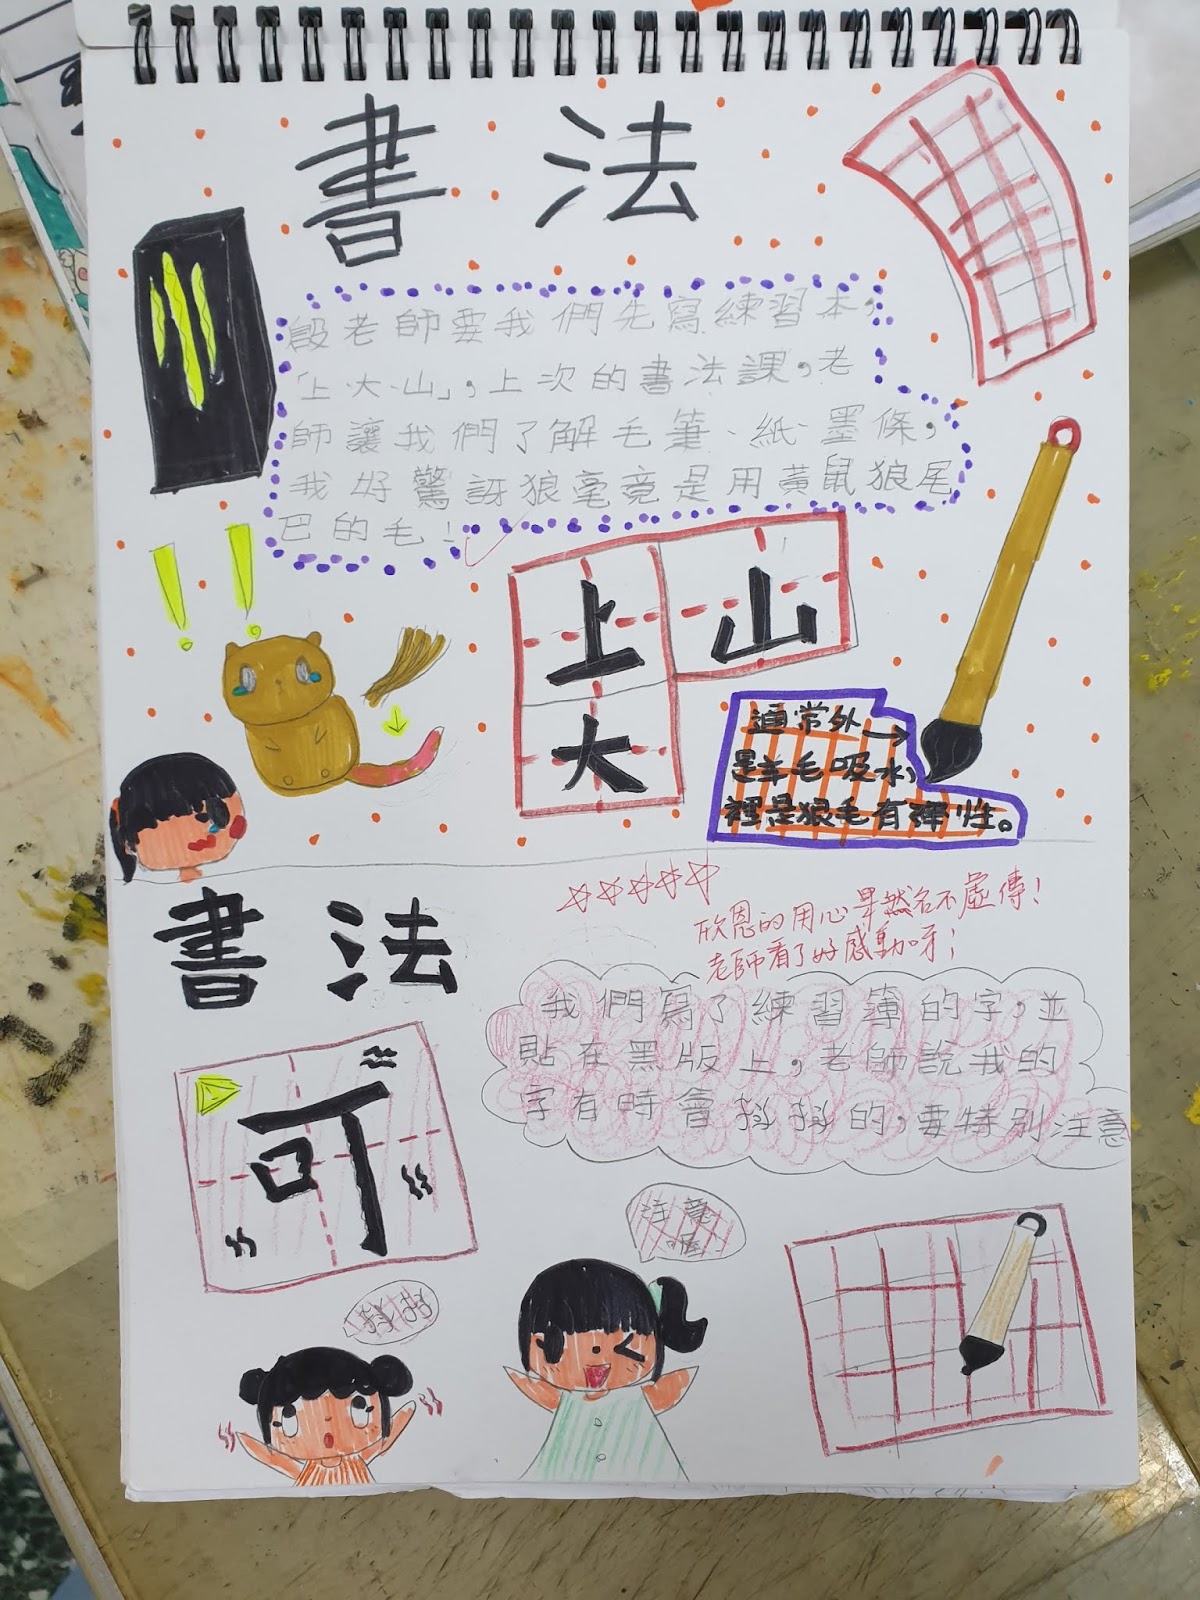 書法
殷老師要我們先寫練習本，
「上、大、山」，上次的書法課，老
師讓我們了解毛筆、紙、墨條，
我好驚訝狼毫竟是用黃鼠狼尾
巴的毛！
!!
上山
大
通常外
是羊毛吸水，
裡是狼毛有彈性。
書法
欣恩的用心果然名不虛傳！
老師看了好感動呀！
我們寫了練習簿的字，並
貼在黑版上，老師說我的
字有時會抖抖的，要特別注意
可
注意
喔
抖抖